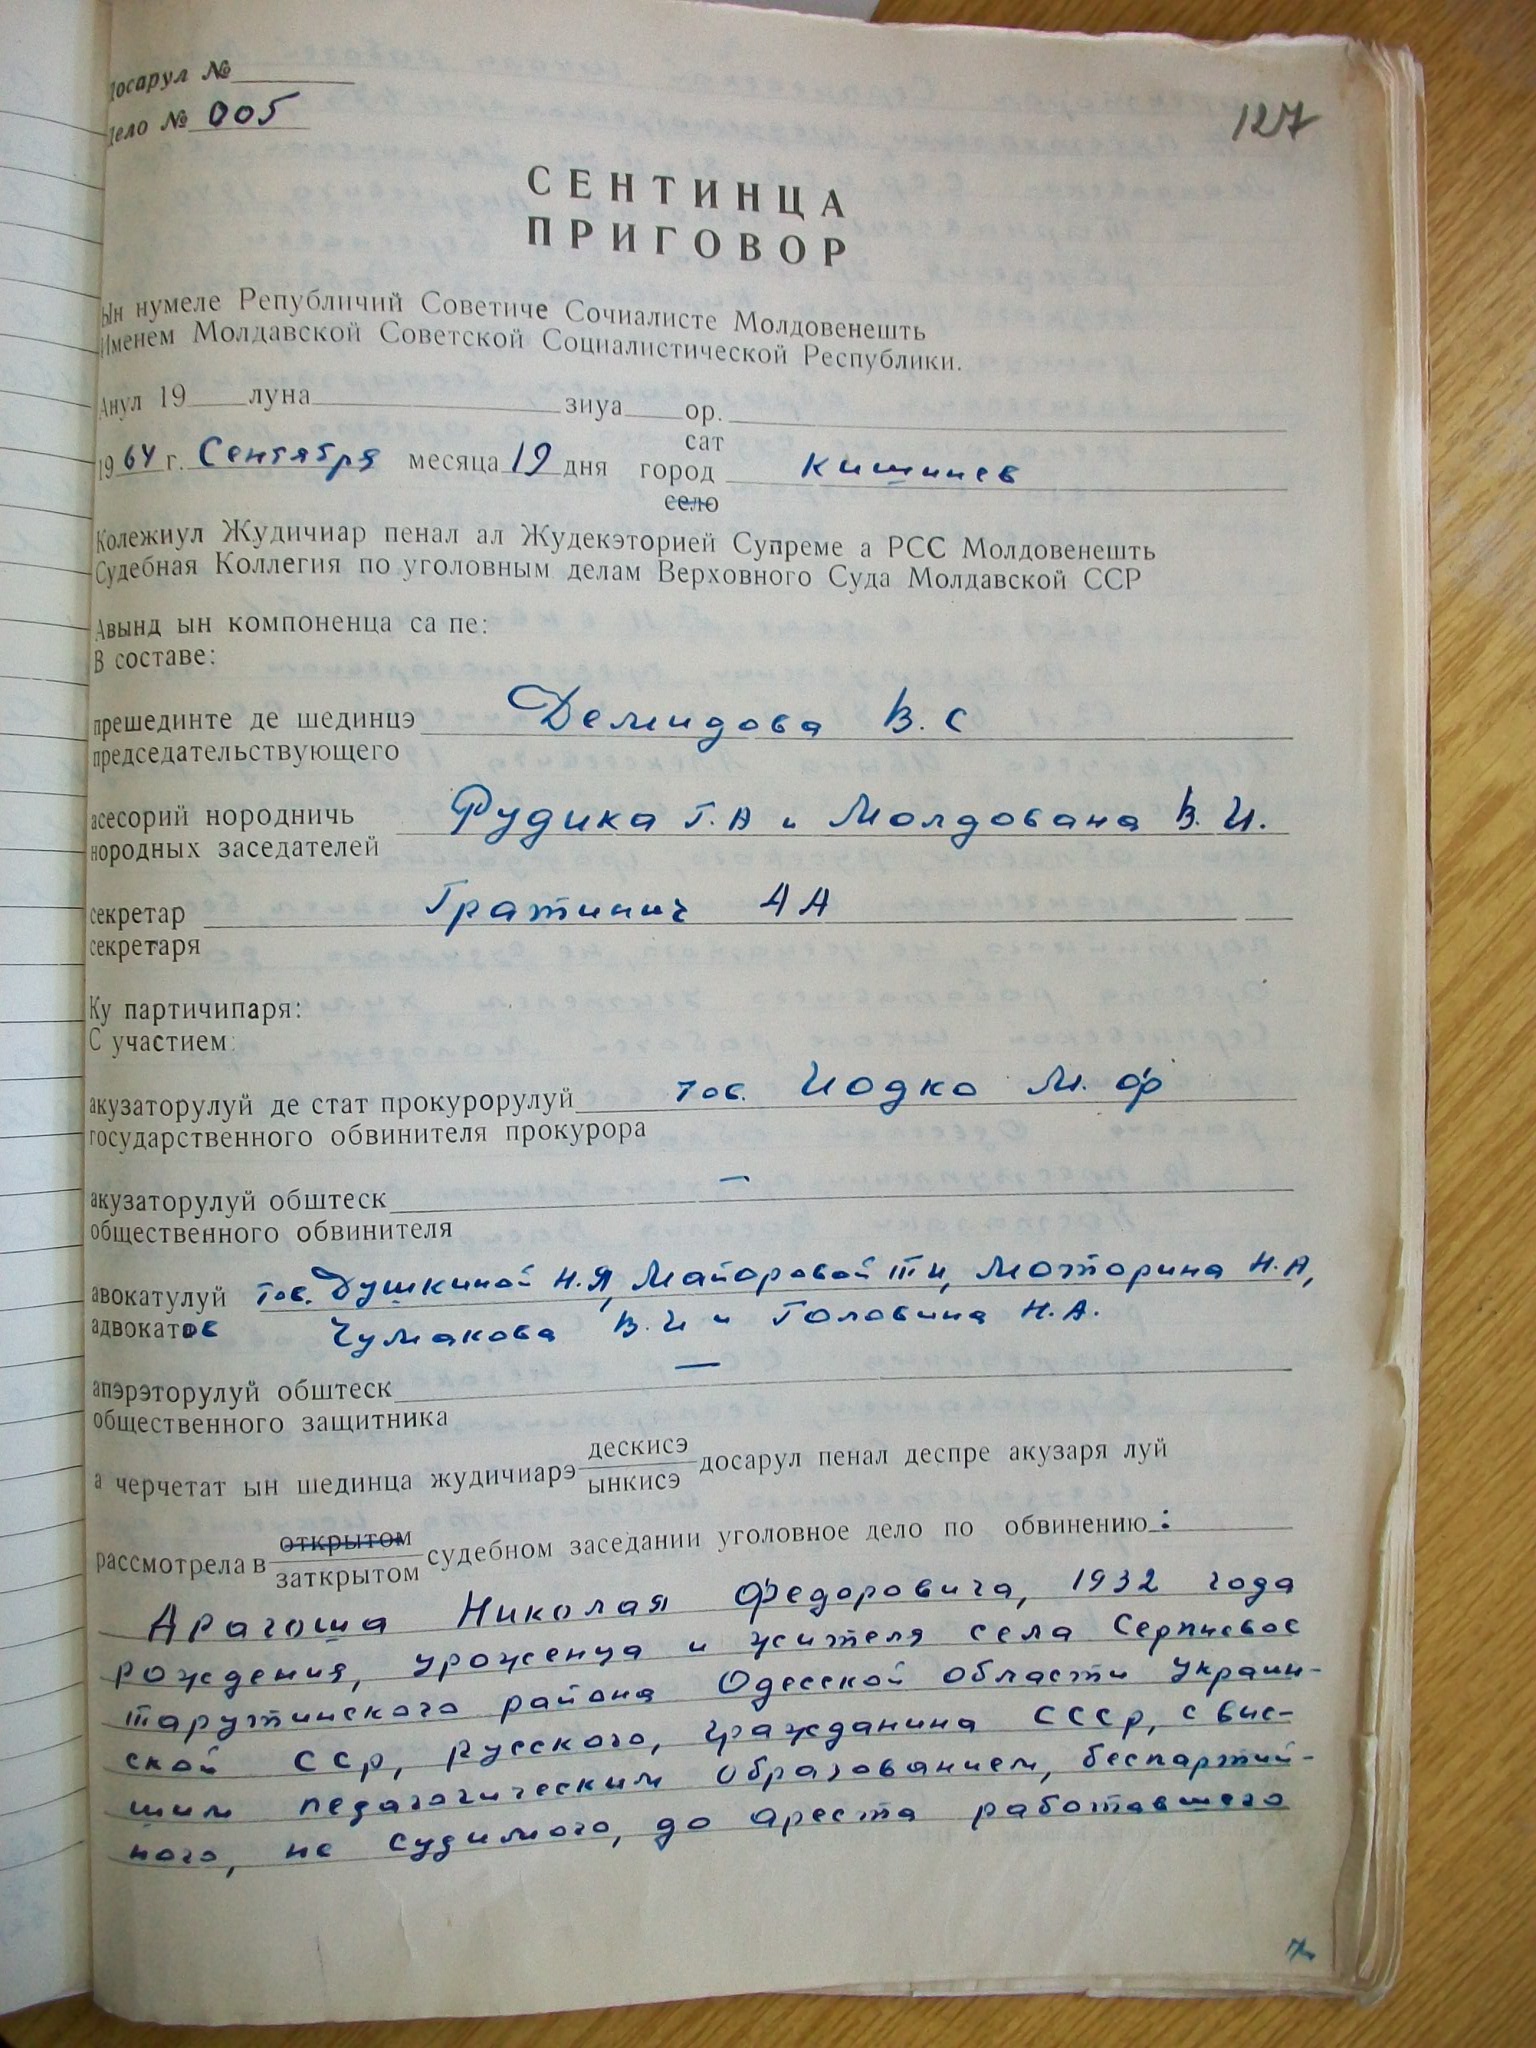 Досарул №
Дело № 005
127
СЕНТИНЦА
ПРИГОВОР
Ын нумеле Републичий Советиче Сочиалисте Молдовенешть
Именем Молдавской Советской Социалистической Республики.
Анул 19 луна зиуа ор.
сат
1964 г. Сентября месяца 19 дня город Кишинев
село
Колежиул Жудичиар пенал ал Жудекэторией Супреме а РСС Молдовенешть
Судебная Коллегия по уголовным делам Верховного Суда Молдавской ССР
Авынд ын компоненца са пе:
В составе:
прешединте де шединцэ Демидова В. С
председательствующего
асесорий нородничь Фудика Г. А и Молдована В. И.
нородных заседателей
секретар Гратинич А А
секретаря
Ку партичипаря:
С участием:
акузаторулуй де стат прокурорулуй тов. Иодко М. Ф
государственного обвинителя прокурора
акузаторулуй обштеск —
общественного обвинителя
авокатулуй тов. Душкиной Н. Я, Майоровой Т И, Моторина Н. А,
адвокатов Чумакова В. И и Головина Н. А.
апэрэторулуй обштеск —
общественного защитника
а черчетат ын шединца жудичиарэ дескисэ ынкисэ досарул пенал деспре акузаря луй
рассмотрела в открытом заткрытом судебном заседании уголовное дело по обвинению :
Драгоша Николая Федоровича, 1932 года
рождения, уроженца и жителя села Серпневое
Тарутинского района Одесской области Украин-
ской ССР, русского, гражданина СССР, с выс-
шим педагогическим образованием, беспартий-
ного, не судимого, до ареста работавшего